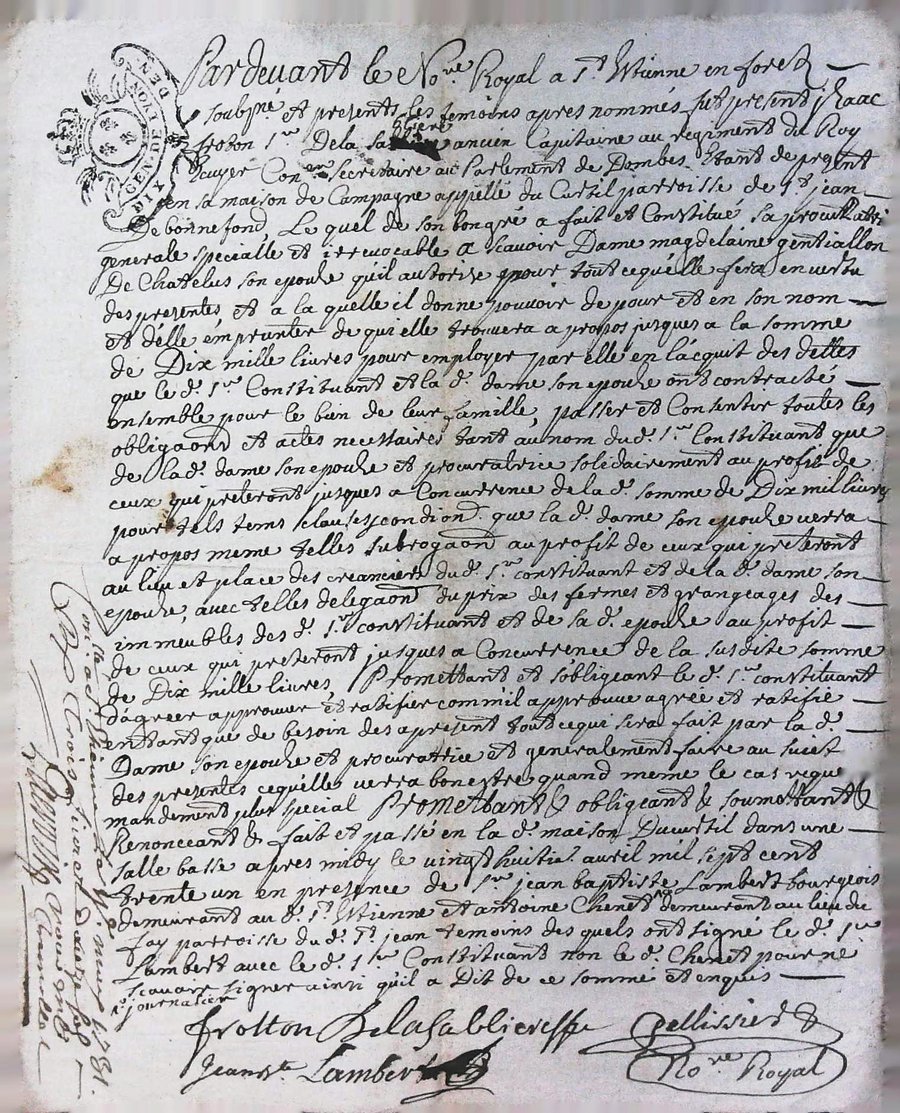 GEN. DE LYON
DIX DEN.
Pardevant le No.re Royal a S.t Etienne en forez
soubsné et presents les temoins apres nommés fut present jsaac
frotton S.r De la sabliere ancien Capitaine au regiment du Roy
Escuyer Con.er Secretaire au Parlement de Dombes Etant de present
en sa maison de Campagne appellé du Curtil parroisse de S.t jean
De bonnefond, Le quel de son bongré a fait et Constitué sa procuratri
generale specialle et irrevocable a scavoir Dame magdelaine gentiallon
De Chatelus son epouse qu'il autorise pour tout cequ'elle fera en vertu
des presentes, et a la quelle il donne pouvoir de pour et en son nom
et d'elle emprunter de qui elle trouvera a propos jusques a la somme
de Dix mille livres pour employer par elle en l'acquit des dettes
que le d. S.r Constituant et la d. dame son epouse ont contracté
ensemble pour le bien de leur famille, passer et Consentir toutes les
obligaons et actes necessaires tant au nom du d. S.r Constituant que
de la d. dame son epouse et procuratrice solidairement au profit de
ceux qui preteront jusques a Concurrence de la d. somme de Dix mil livres
pour tels tems clauses condions que la d. dame son epouse verra
a propos meme telles subrogaons au profit de ceux qui preteront
au lieu et place des creanciers du d. S.r constituant et de la d. dame son
epouse, avec telles delegaons du prix des fermes et grangeages des
immeubles des d. S.r constituant et de sa d. epouse au profit
de ceux qui preteront jusques a Concurrence de la susdite somme
de Dix mille livres, Promettant et s'obligeant le d. S.r constituant
d'agreer approuver et ratifier comm'il approuve agrée et ratifie
entant que de besoin des apresent tout cequi sera fait par la d.
Dame son epouse et procuratrice et generalement faire au sujet
des presentes cequ'elles verra bon estre quand meme le cas reque
mandement plus special Promettant & obligeant & soumettant &
Renonceant & fait et passé en la d. maison Ducurtil dans une
salle basse apres midy le vingt huiti.e auril mil sept cent
trente un en presence de S.r jean baptiste Lambert bourgeois
demeurant au d. S.t Etienne et antoine Chenet demeurant au lieu du
fay parroisse du d. S.t jean temoins des quels ont signe le d. S.r
Lambert avec le d. S.r Constituant non le d. Chenet pour ne
scavoir signer ainsi qu'il a Dit de ce sommé et enquis
journalier
frotton Delasabliere
Pellissier
Jean B.te Lambert
No.re Royal
1731